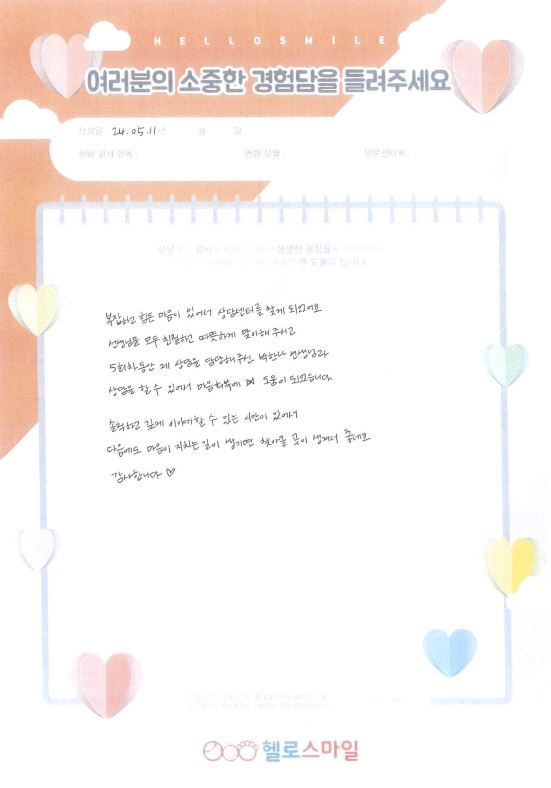 HELLOSMILE
여러분의 소중한 경험담을 들려주세요
작성일 : 24.05.11 년 월 일
상담 검사 항목 : 연령 성별 : 방문센터명 :
복잡하고 힘든 마음이 있어서 상담센터를 찾게 되었어요
선생님들 모두 친절하고 따뜻하게 맞이해 주시고
5회차동안 제 상담을 담당해주신 박한나 선생님과
상담을 할 수 있어서 마음회복에 도움이 되었습니다.
솔직하고 깊게 이야기할 수 있는 시간이 있어서
다음에도 마음이 지치는 일이 생기면 찾아올 곳이 생겨서 좋네요
감사합니다 ♡
헬로스마일